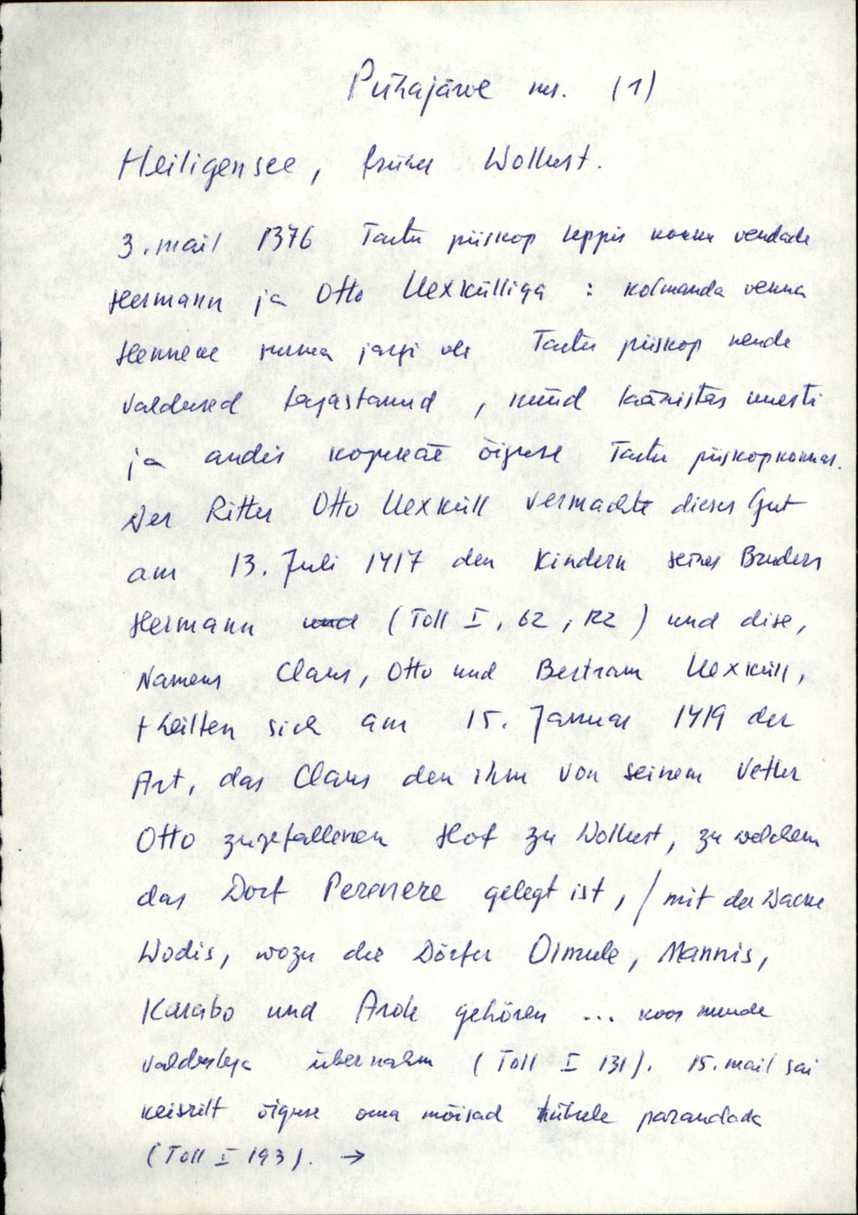 Pühajärve ms. (1)
Heiligensee, früher Wollust.
3. mail 1376 Tartu piiskop leppis kokku vendade
Hermann ja Otto Uexkülliga : kolmanda venna
Henneke surma järgi oli Tartu piiskop nende
valdused tagastanud, nüüd läänistas uuesti
ja andis õiguse Tartu piiskopkonnas.
Der Ritter Otto Uexküll vermachte dieses Gut
am 13. Juli 1417 den Kindern seines Bruders
Hermann und (Toll I, 62, 122) und dise,
Namens Claus, Otto und Bertram Uexküll,
theilten sich am 15. Januar 1419 der
Art, das Claus den ihm von seinem Vetter
Otto zugefallenen Hof zu Wollust, zu welchem
das Dorf gelegt ist, / mit der Wacke
Wodis, wozu die Dörfer Oimule, Mannis,
Karrabo und Arole gehören ... koos muude
valdustega übernahm (Toll I 131). 15. mail sai
keisrilt õiguse oma mõisad parandada
(Toll I 193). →